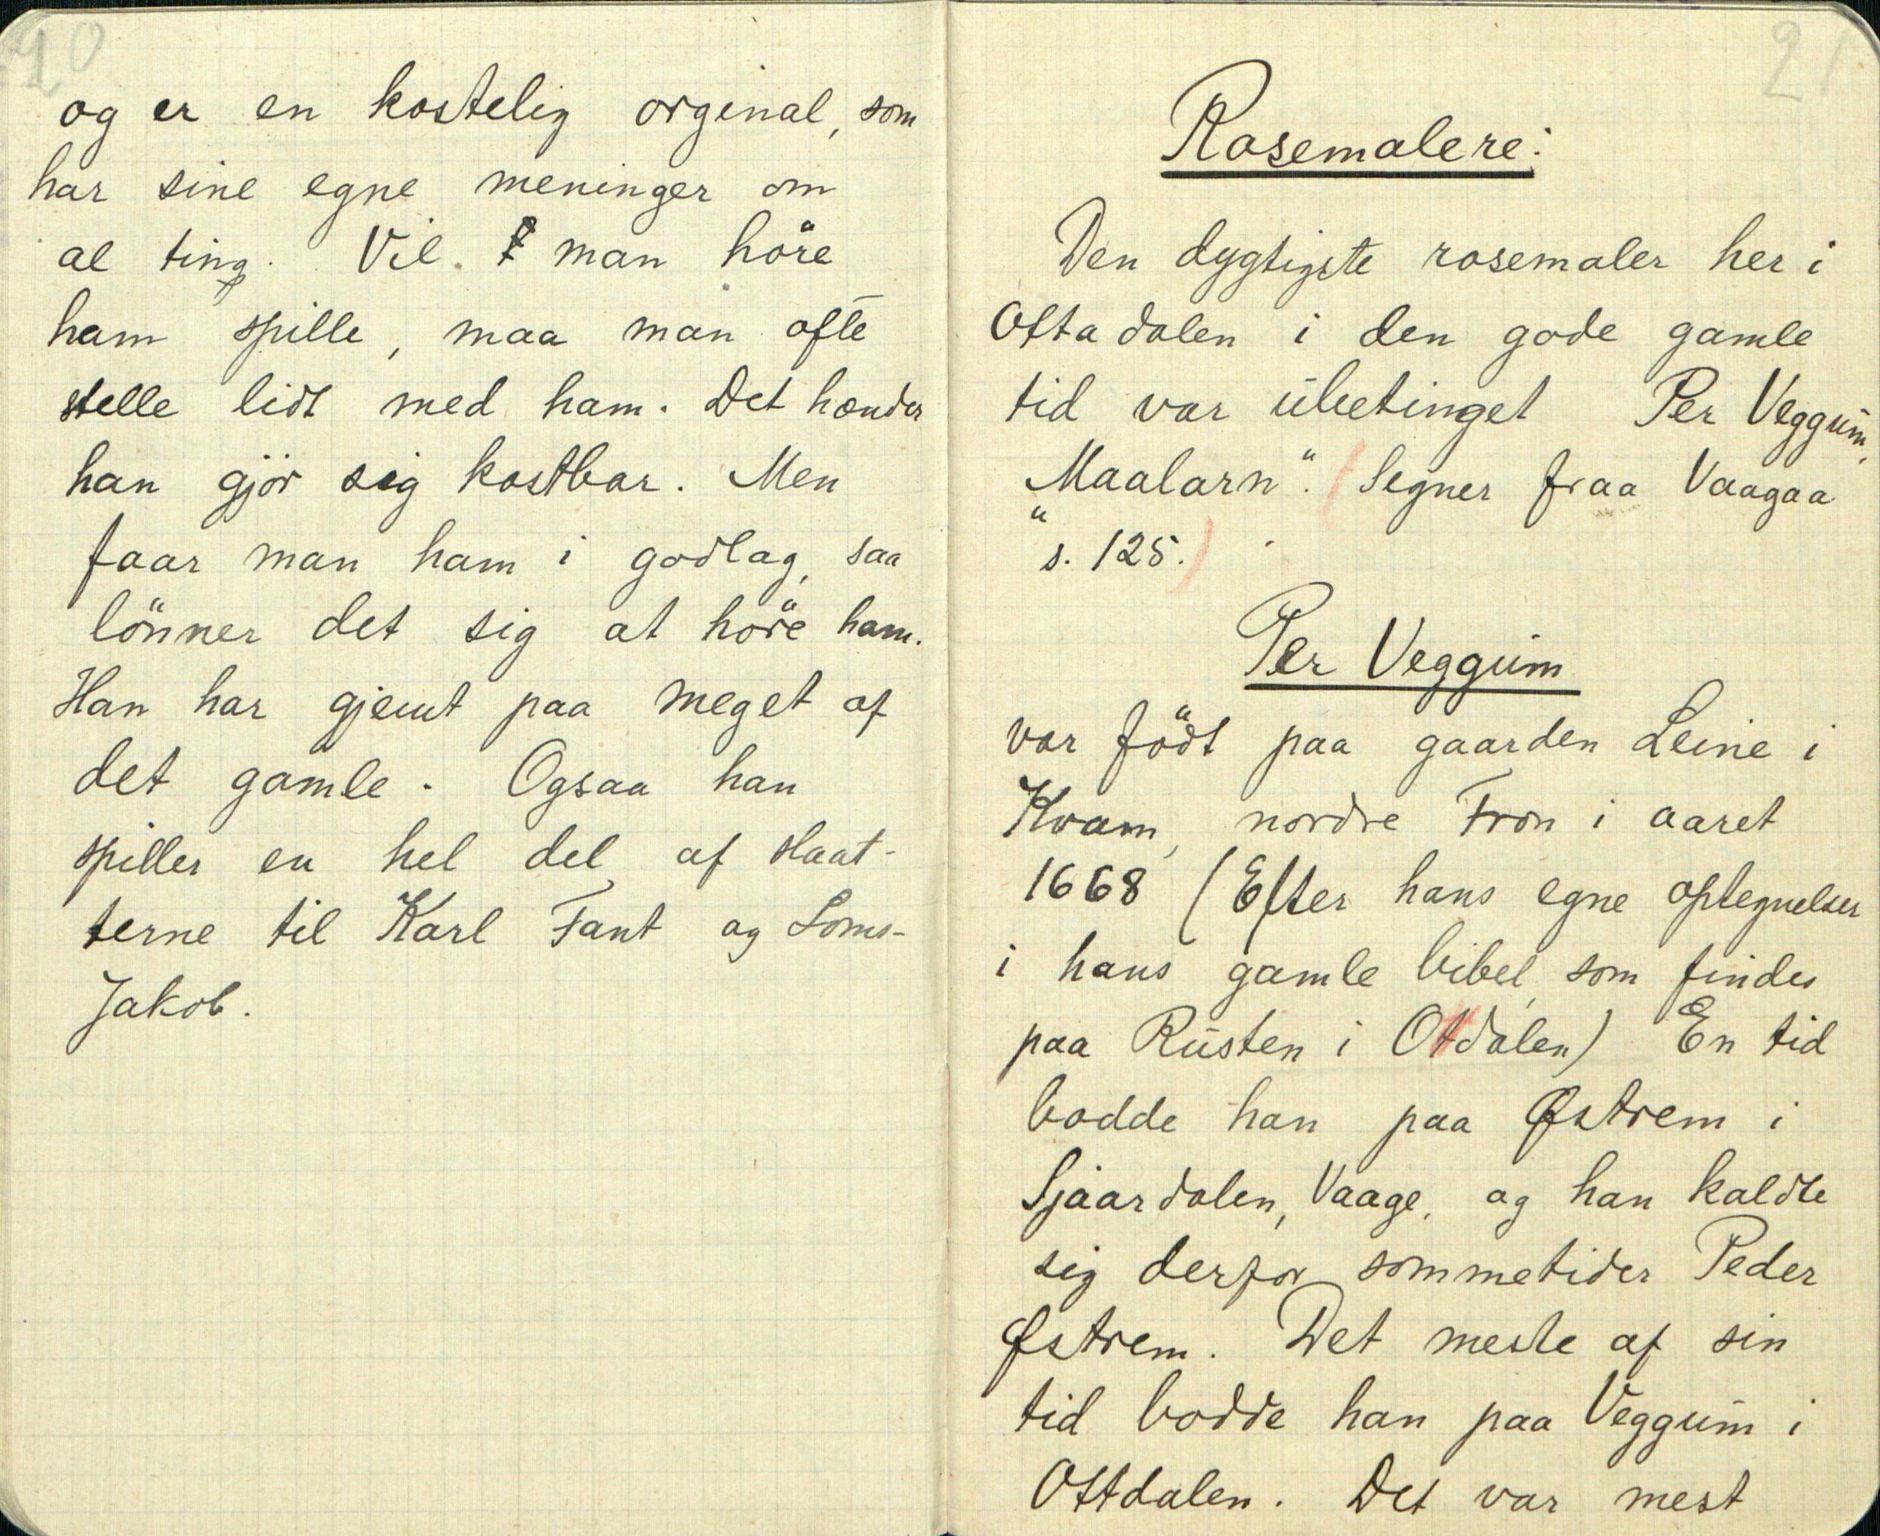 20
og er en kostelig orginal, som
har sine egne meninger om
al ting. Vil man höre
ham spille, maa man ofte
stelle lidt med ham. Det hænder
han gjör sig kostbar. Men
faar man ham i godlag, saa
lönner det sig at höre ham.
Han har gjemt paa meget af
det gamle. Ogsaa han
spiller en hel del af slaat-
terne til Karl Fant og Loms-
Jakob.
21
Rosemalere:
Den dygtigste rosemaler her i
Ottadalen i den gode gamle
tid var ubetinget Per Veggum,
„Maalarn“. (Segner fraa Vaagaa“
s. 125.)
Per Veggum
var födt paa gaarden Leine i
Kvam, nordre Fron i aaret
1668 (Efter hans egne optegnelser
i hans gamle bibel, som findes
paa Rusten i Ottdalen) En tid
bodde han paa Østrem i
Sjaardalen, Vaage, og han kaldte
sig derfor sommetider Peder
Østrem. Det meste af sin
tid bodde han paa Veggum i
Ottdalen. Det var mest